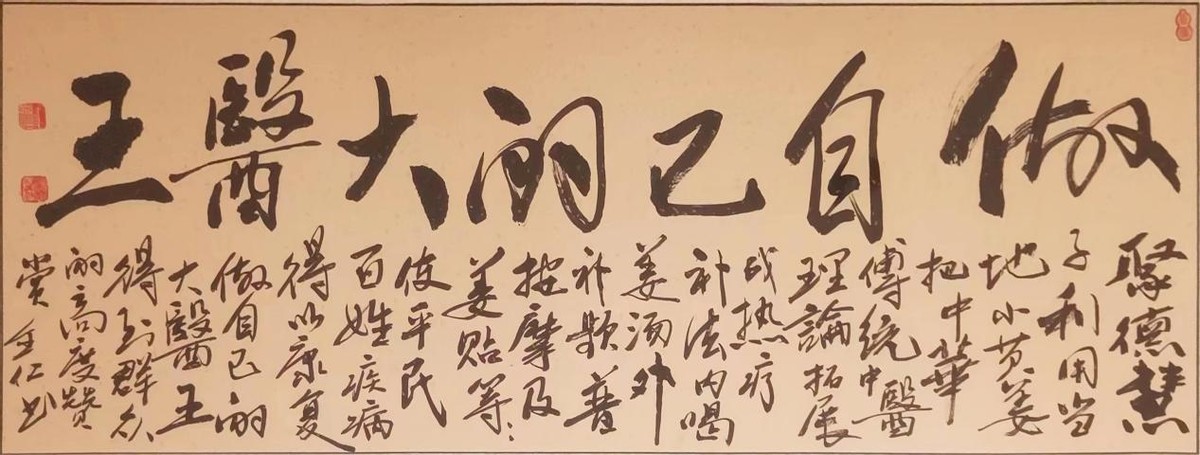 做自己的大醫王
聚德慧
子利用当
地小黄姜
把中華
傳統中醫
理論拓展
成热疗
补法内喝
姜汤外
补
按摩及
姜贴等
使平民
百姓疾病
得以康复
做自己的
大醫王
得到群众
的高度赞
赏 仁书